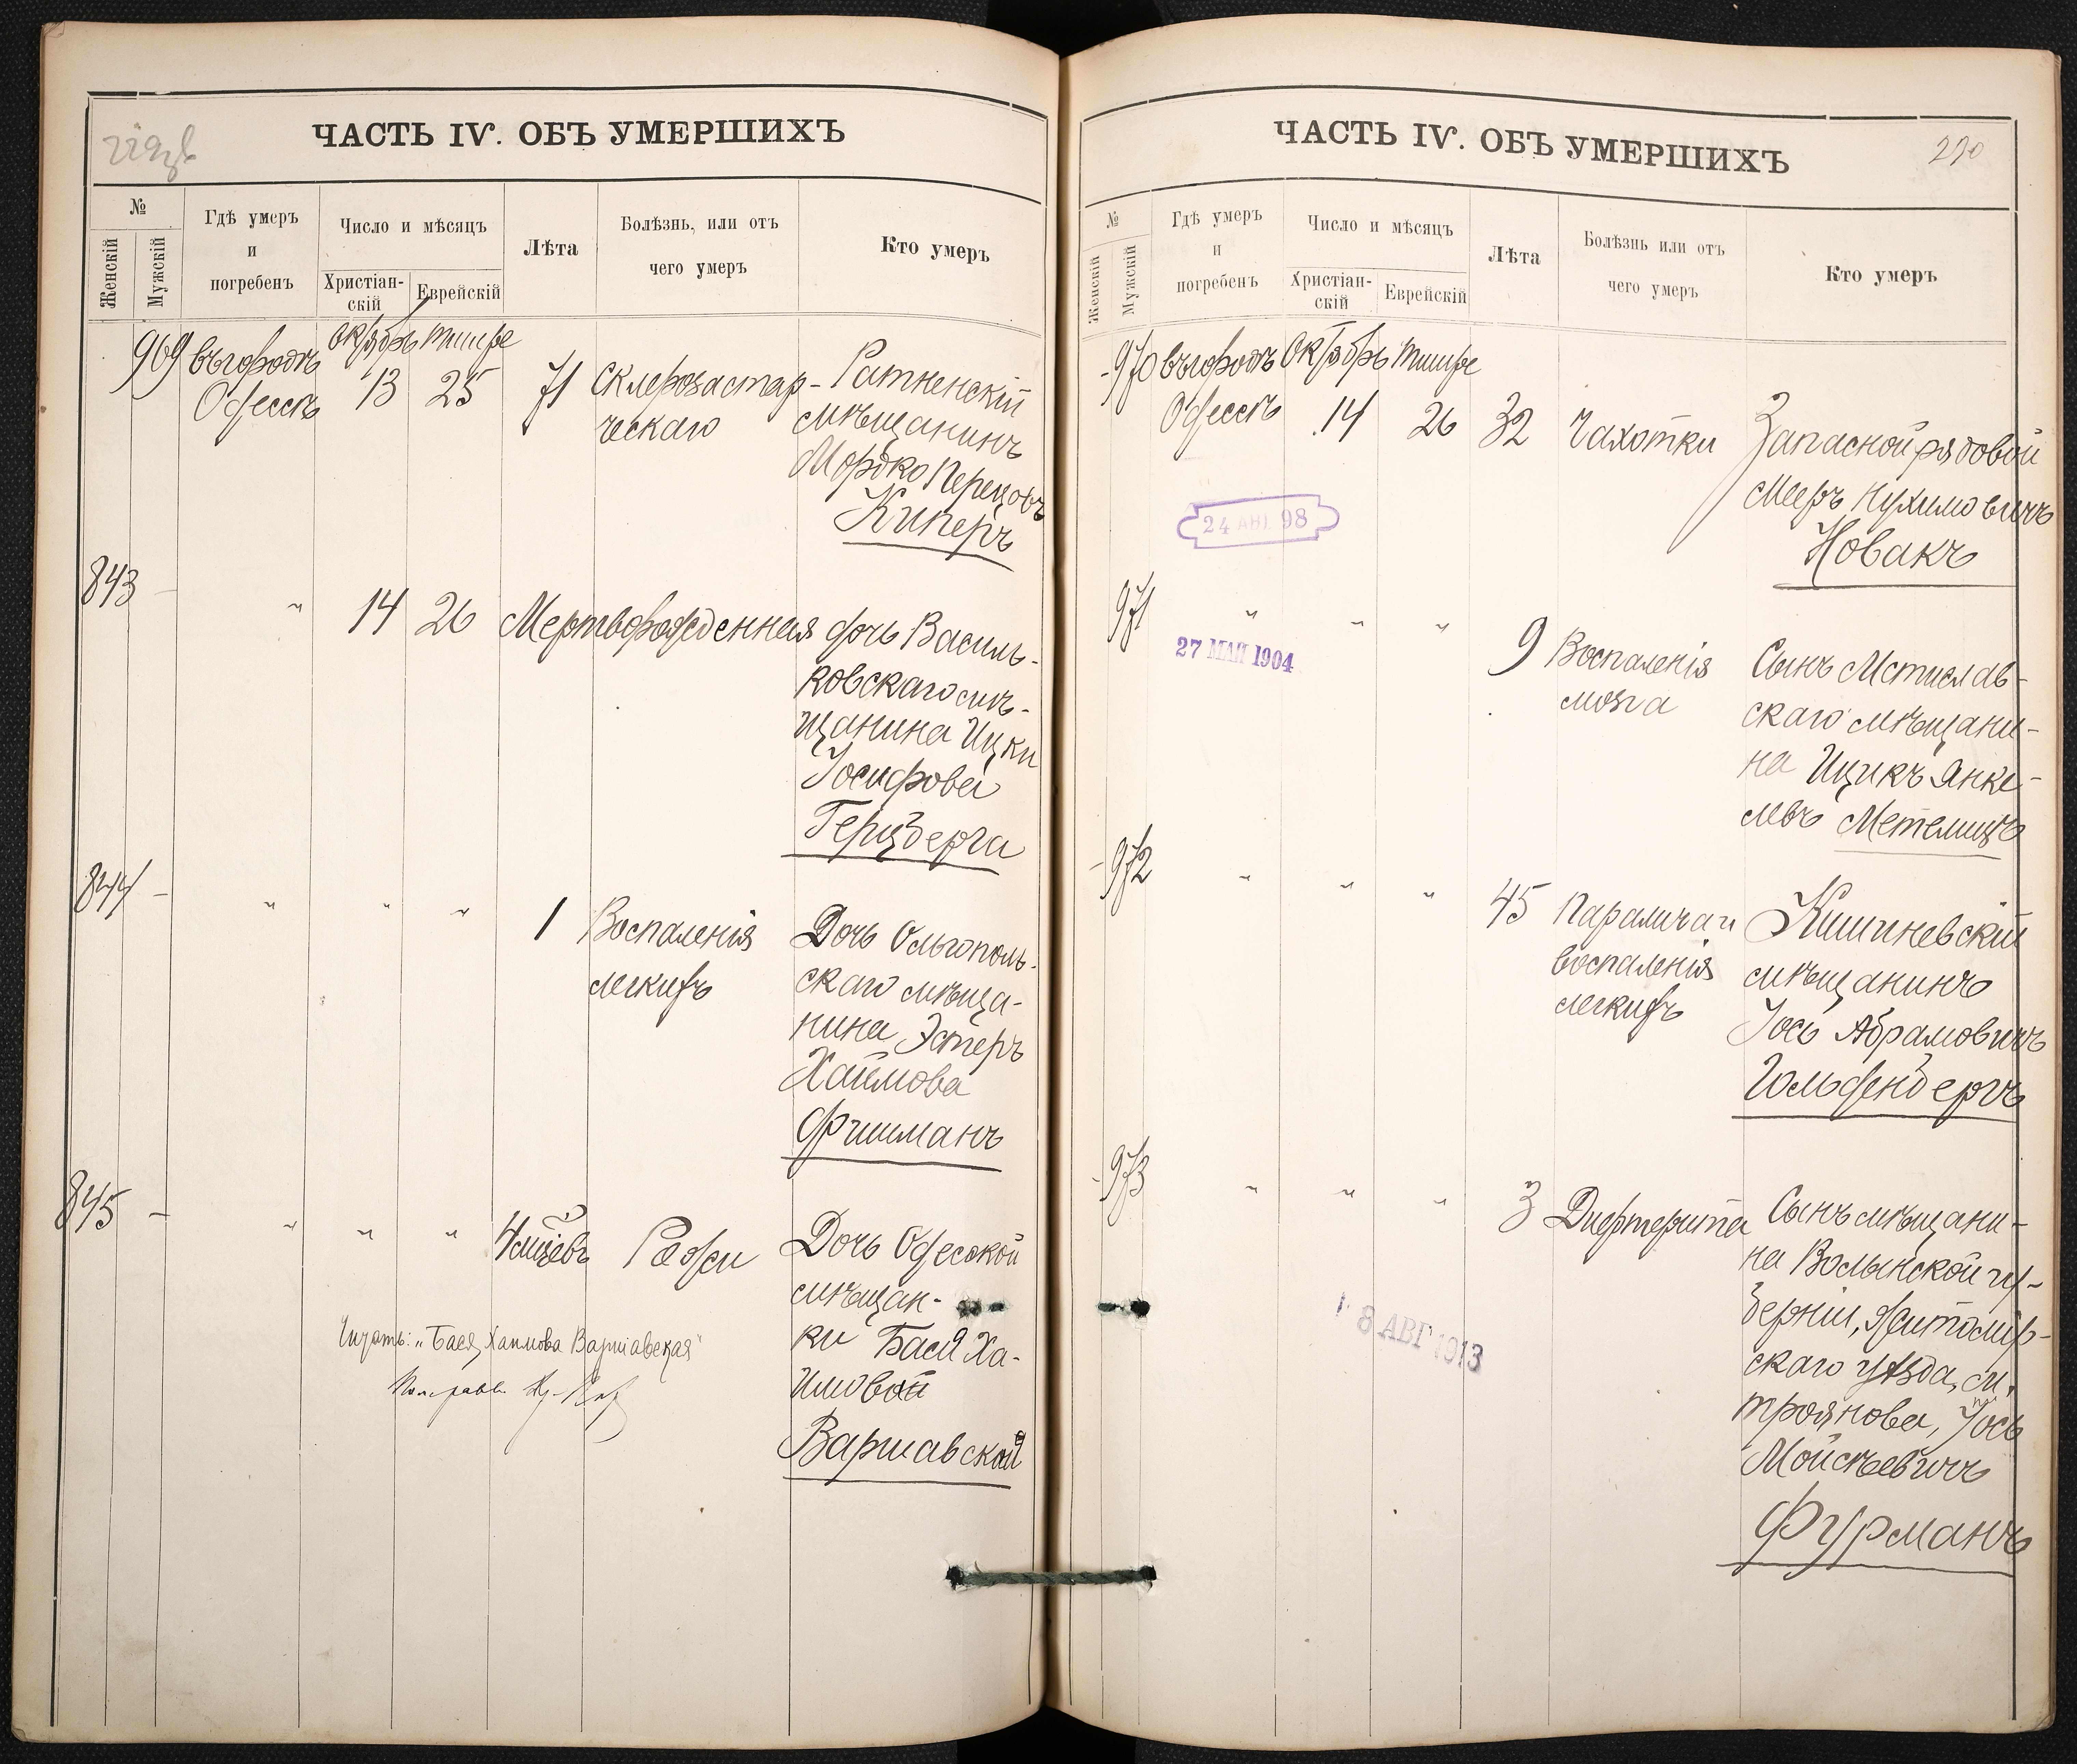 ЧАСТЬ IV. ОБЪ УМЕРШИХЪ
№
Женскій
Мужскій
Гдѣ умеръ
и
погребенъ
Число и мѣсяцъ
Христіан-
скій
Еврейскій
Лѣта
Болѣзнь, или отъ
чего умеръ
Кто умеръ
969 въ городѣ Октябрь Тишре
Одессѣ 13 25 71 Склероза стар-
ческаго
Ратненскій
мѣщанинъ
Мордко Перецовъ
Киперъ
843 - " 14 26 Мертворожденная дочь Василь-
ковскаго мѣ-
щанина Ицки
Іосифова
Герцберга
844 - " " " 1 Воспаленія
легкихъ
Дочь Ольгополь-
скаго мѣща-
нина Эстеръ
Хаимова
Фишманъ
845 - " " " 4 мцевъ Родми
Дочь Одесской
мѣщан-
ки Бася Ха-
имовой
Варшавской
Читать: "Бася Хаимова Варшавская"
ЧАСТЬ IV. ОБЪ УМЕРШИХЪ
290
№
Женскій
Мужскій
Гдѣ умеръ
и
погребенъ
Число и мѣсяцъ
Христіан-
скій
Еврейскій
Лѣта
Болѣзнь или отъ
чего умеръ
Кто умеръ
-970 въ городѣ Октябрь Тишре
Одессѣ 14 26 32 Чахотки
Запасной рядовой
Мееръ Нухимовичъ
Новакъ
24 АВГ 98
971 " " " 9 Воспаленія
мозга
Сынъ Мстислав-
скаго мѣщани-
на Ицикъ Янке-
левъ Метелицъ
27 МАЙ 1904
-972 " " " 45 Паралича и
воспаленія
легкихъ
Кишиневскій
мѣщанинъ
Іось Абрамовичъ
Гольденбергъ
-973 " " " 3 Дифтерита
Сынъ мѣщани-
на Волынской гу-
берніи, Житомір-
скаго уѣзда, м.
Троянова, Іось
Мойсѣевичъ
Фурманъ
8 АВГ 1913